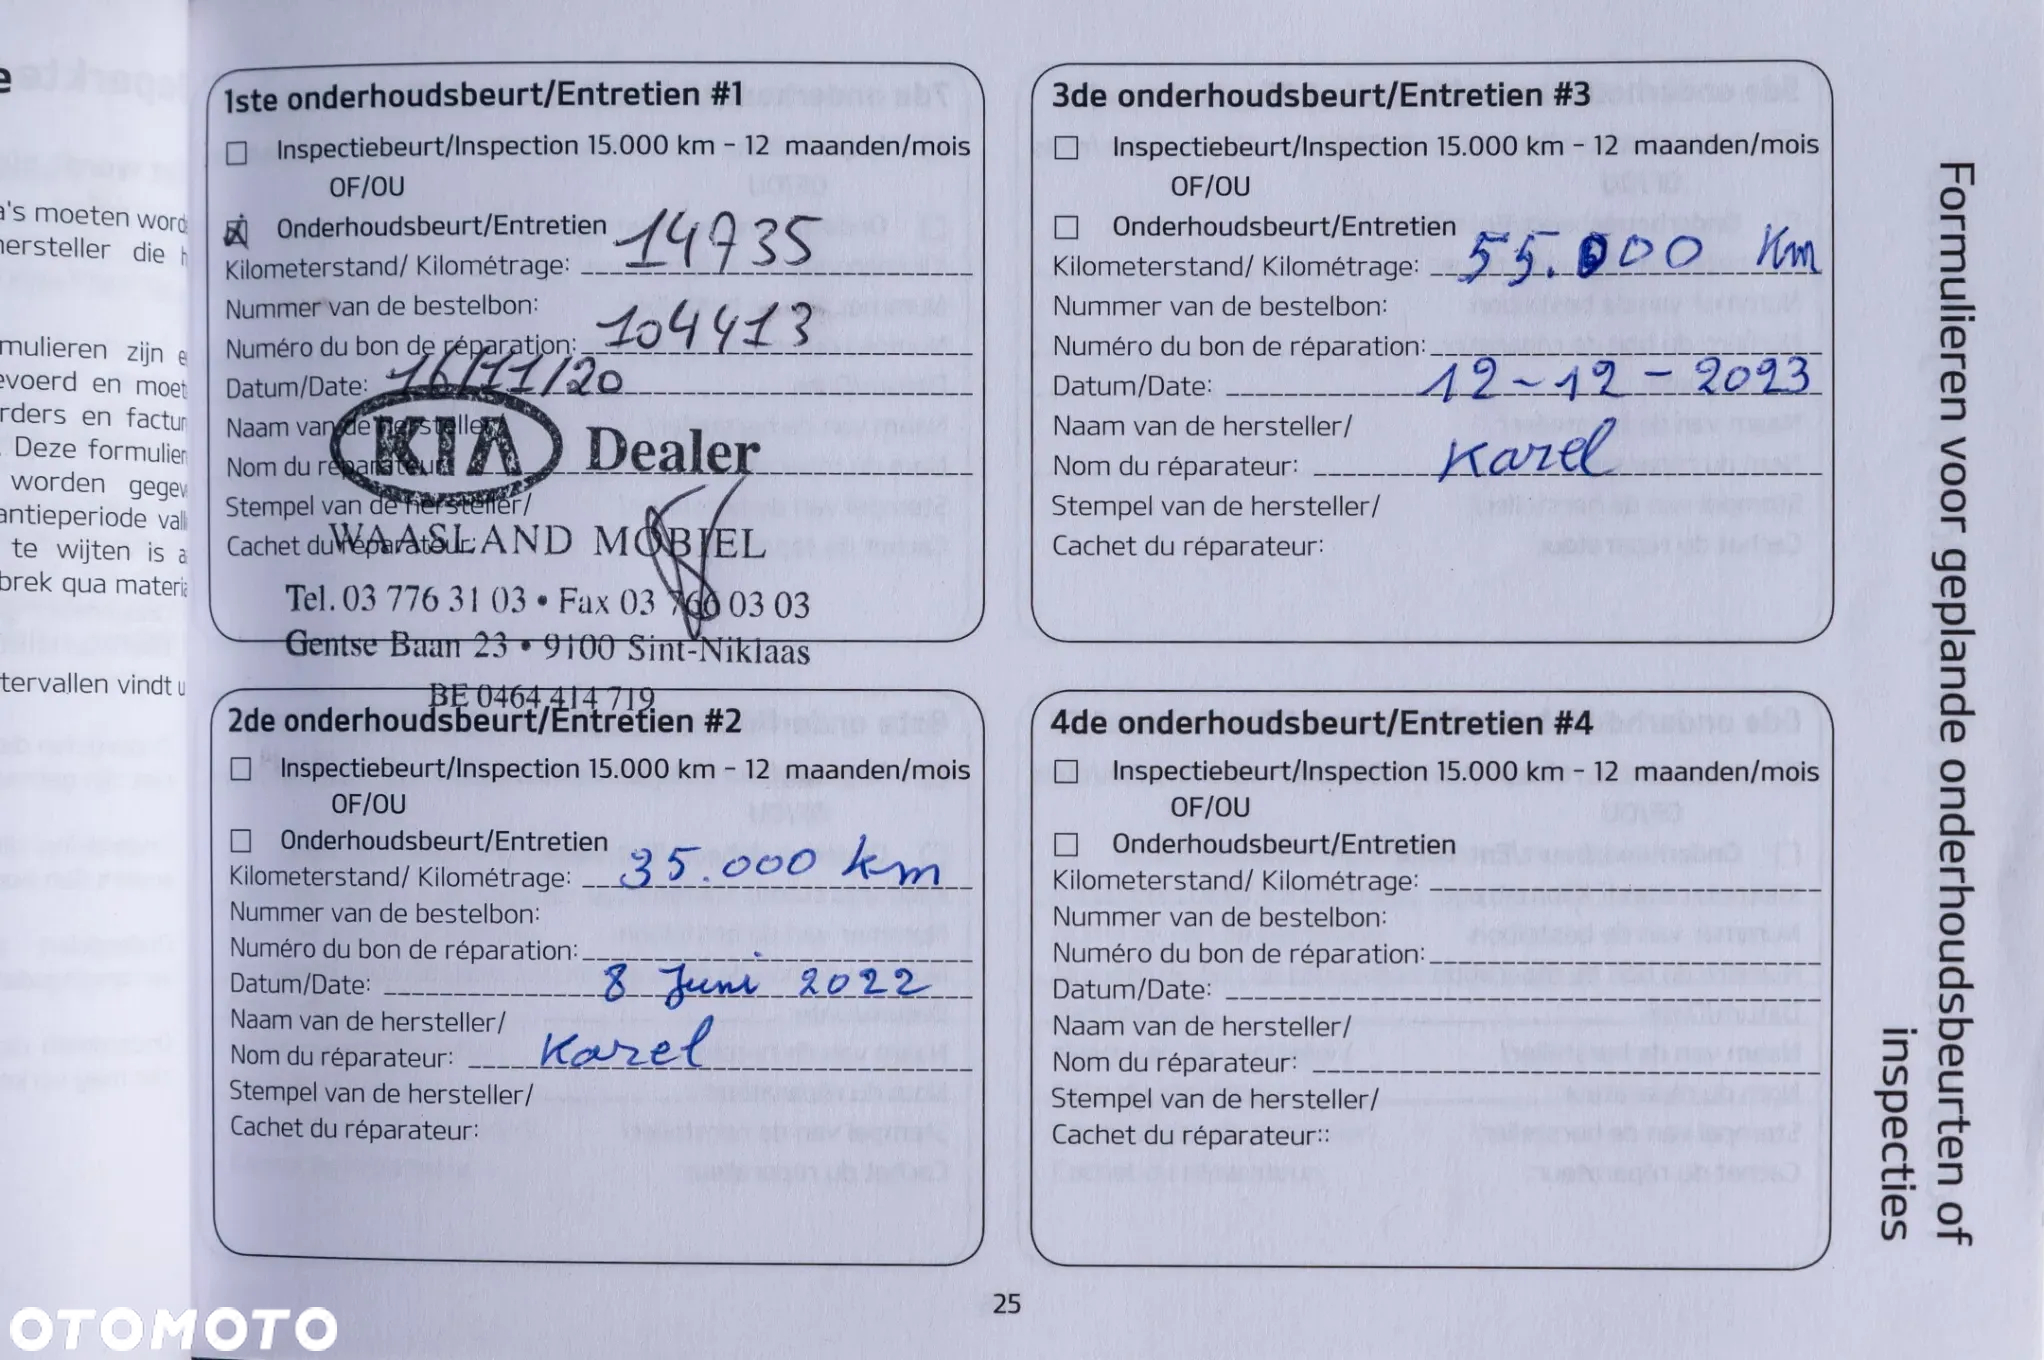 e
a's moeten word
hersteller die h
mulieren zijn e
evoerd en moet
rders en factur
. Deze formulier
worden gegev
antieperiode vall
te wijten is a
brek qua materia
tervallen vindt u
1ste onderhoudsbeurt/Entretien #1
Inspectiebeurt/Inspection 15.000 km - 12 maanden/mois
OF/OU
Onderhoudsbeurt/Entretien
Kilometerstand/ Kilométrage: 14735
Nummer van de bestelbon:
Numéro du bon de réparation: 104413
Datum/Date: 16/11/20
Naam van de hersteller/
Nom du réparateur:
KIA Dealer
Stempel van de hersteller/
Cachet du réparateur:
WAASLAND MOBIEL
Tel. 03 776 31 03 • Fax 03 766 03 03
Gentse Baan 23 • 9100 Sint-Niklaas
BE 0464 414 719
2de onderhoudsbeurt/Entretien #2
Inspectiebeurt/Inspection 15.000 km - 12 maanden/mois
OF/OU
Onderhoudsbeurt/Entretien
Kilometerstand/ Kilométrage: 35.000 km
Nummer van de bestelbon:
Numéro du bon de réparation:
Datum/Date: 8 Juni 2022
Naam van de hersteller/
Nom du réparateur: Karel
Stempel van de hersteller/
Cachet du réparateur:
3de onderhoudsbeurt/Entretien #3
Inspectiebeurt/Inspection 15.000 km - 12 maanden/mois
OF/OU
Onderhoudsbeurt/Entretien
Kilometerstand/ Kilométrage: 55.000 Km
Nummer van de bestelbon:
Numéro du bon de réparation:
Datum/Date: 12-12-2023
Naam van de hersteller/
Nom du réparateur: Karel
Stempel van de hersteller/
Cachet du réparateur:
4de onderhoudsbeurt/Entretien #4
Inspectiebeurt/Inspection 15.000 km - 12 maanden/mois
OF/OU
Onderhoudsbeurt/Entretien
Kilometerstand/ Kilométrage:
Nummer van de bestelbon:
Numéro du bon de réparation:
Datum/Date:
Naam van de hersteller/
Nom du réparateur:
Stempel van de hersteller/
Cachet du réparateur::
Formulieren voor geplande onderhoudsbeurten of
inspecties
25
OTOMOTO